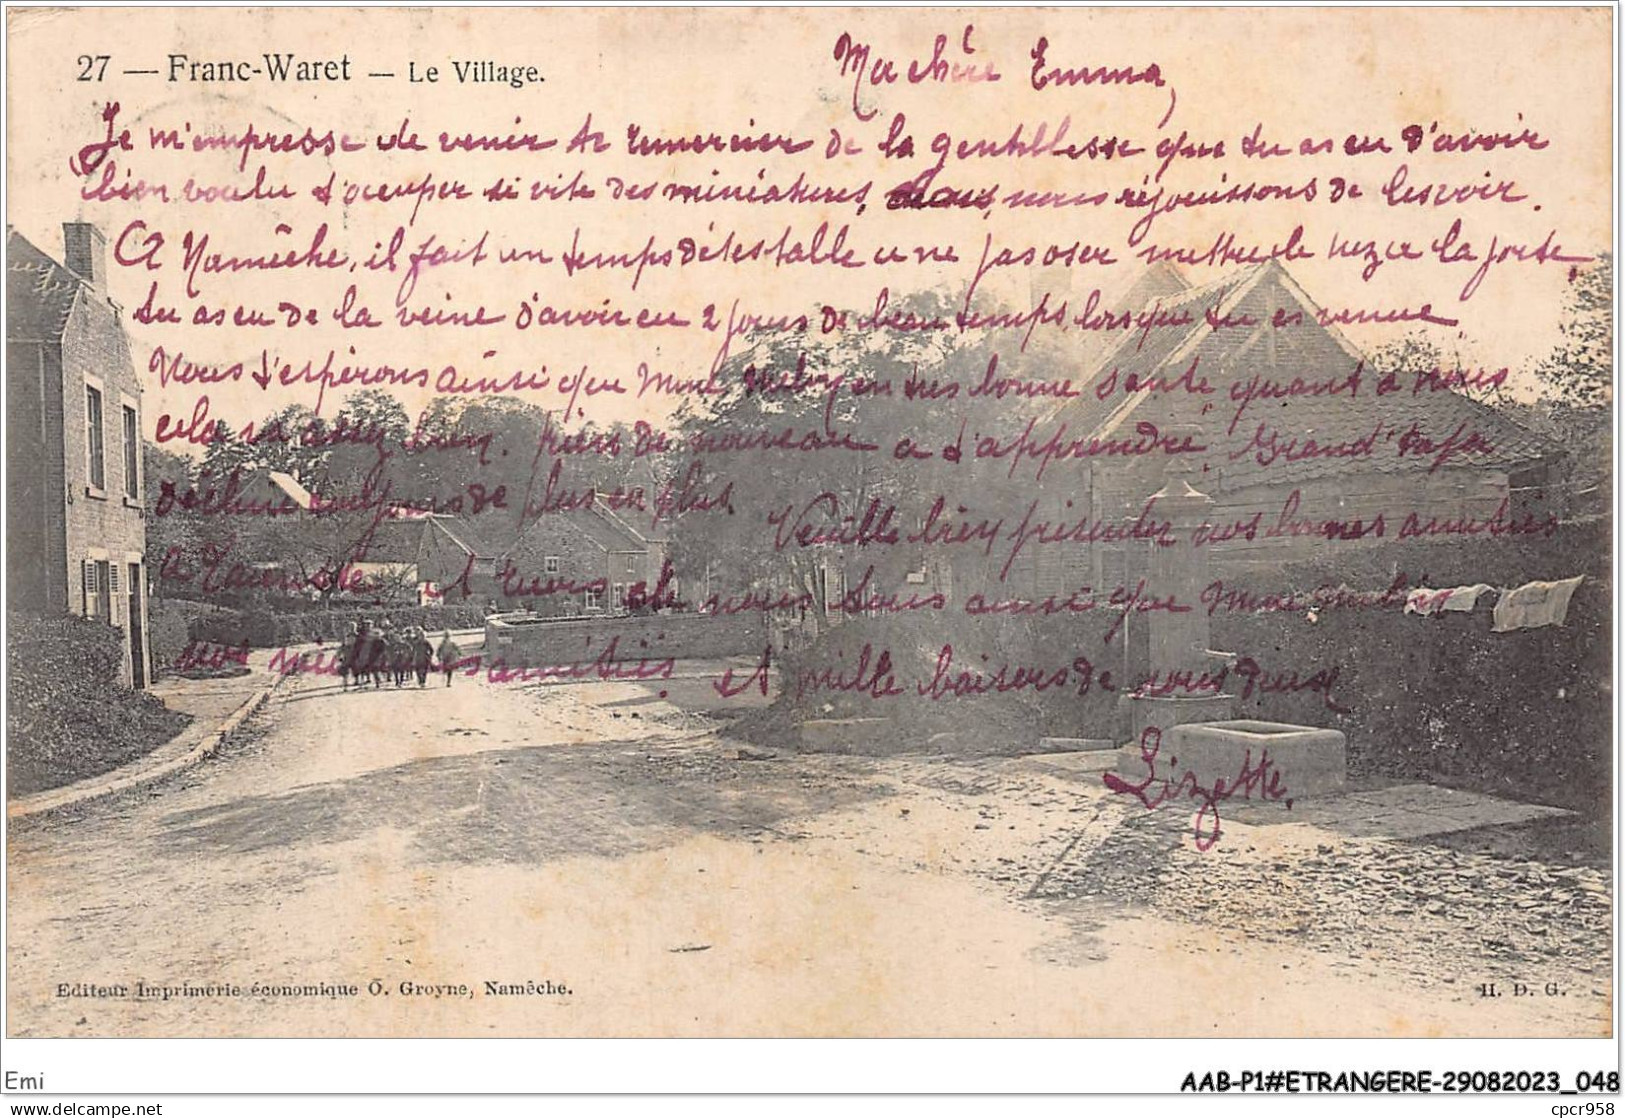 27 — Franc-Waret — Le Village.
Ma chère Emma,
Je m'empresse de venir te remercier de la gentillesse que tu as eu d'avoir
bien voulu t'occuper si vite des miniatures, nous réjouissons de les voir.
A Namêche, il fait un temps détestable a ne pas oser mettre le nez a la porte,
tu as eu de la veine d'avoir eu 2 jours de beau temps lorsque tu es venue.
Nous t'espérons ainsi que Mme en très bonne santé quant à nous
cela va assez bien. rien de nouveau a t'apprendre. Grand'papa
décline toujours de plus en plus.
Veuille bien présenter nos bonnes amitiés
a et nous tous ainsi que Mme
nos meilleures amitiés. et mille baisers de nous deux
Lizette.
Editeur Imprimerie économique O. Groyne, Namêche.
H. D. G.
Emi
AAB-P1#ETRANGERE-29082023_048
www.delcampe.net
cpcr958